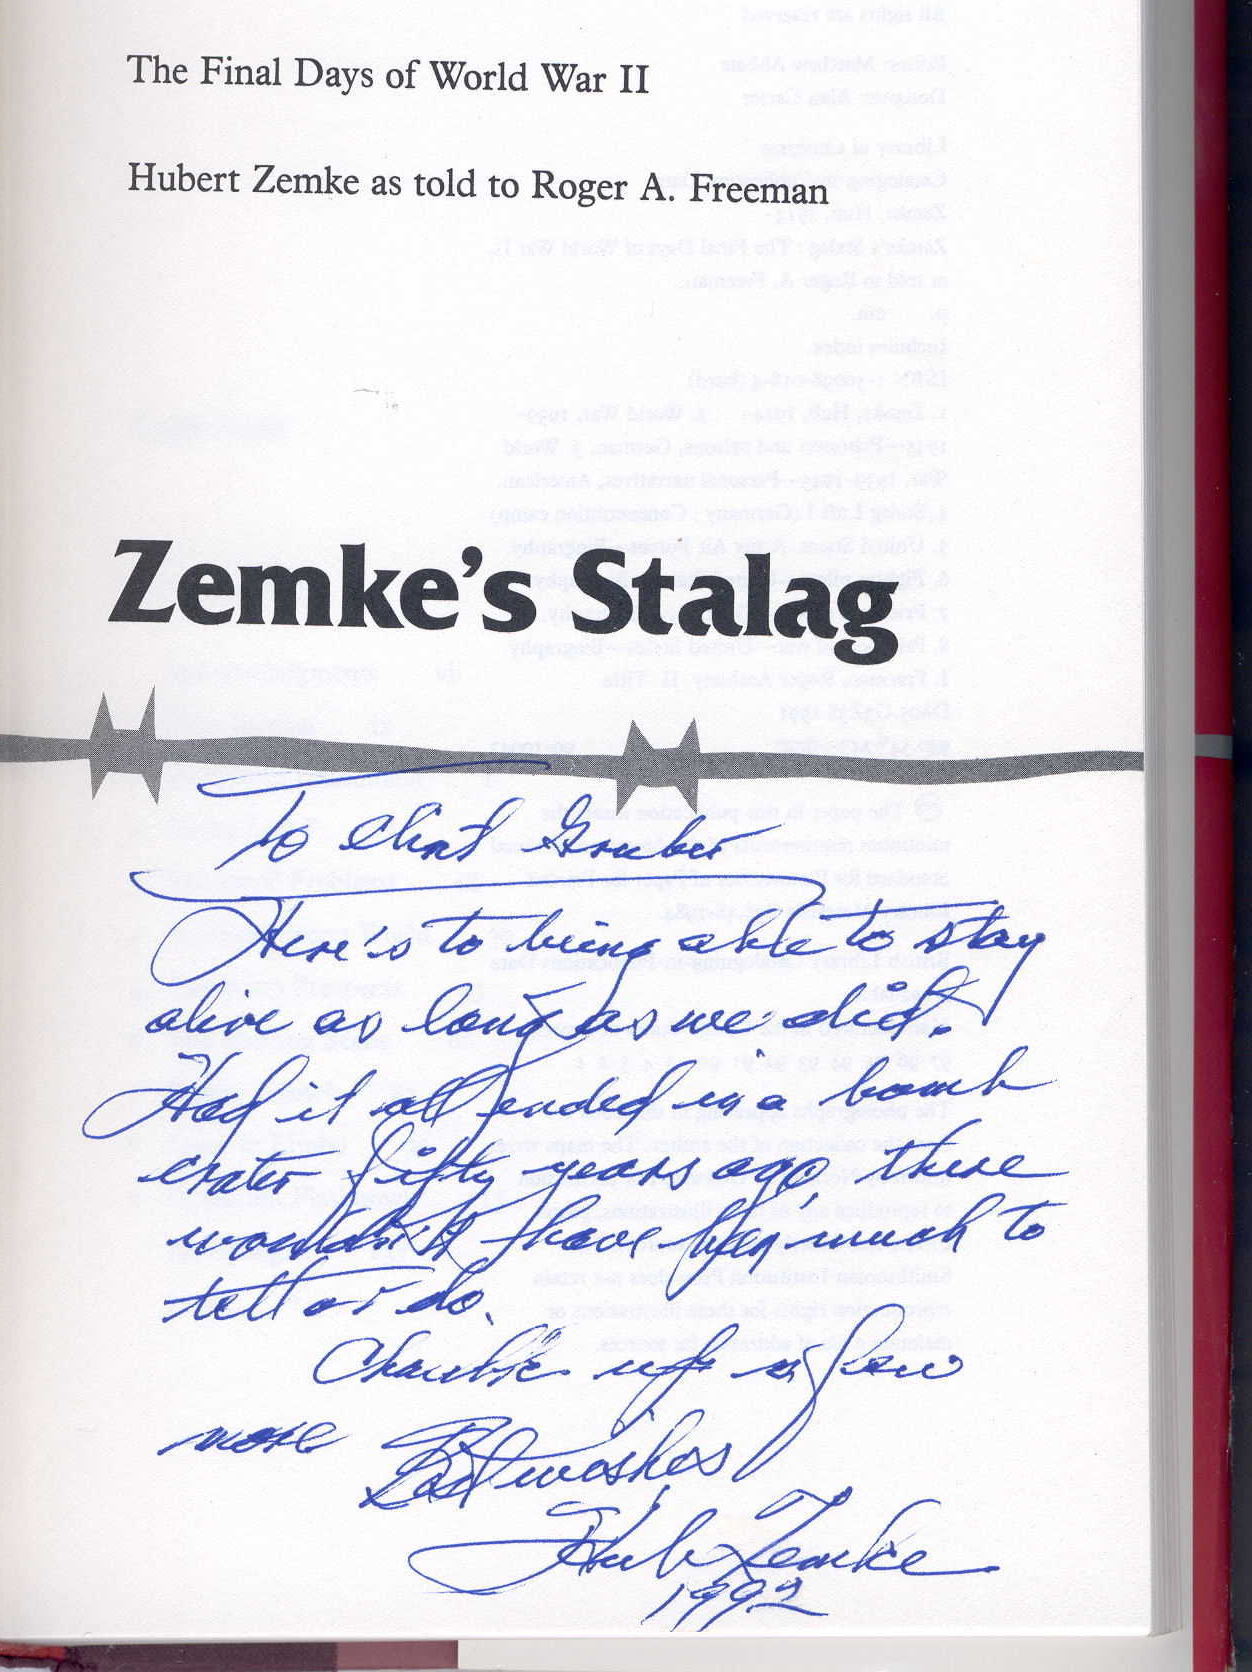 The Final Days of World War II
Hubert Zemke as told to Roger A. Freeman
Zemke's Stalag
To Chat Gruber
Here's to being able to stay
alive as long as we did.
Had it all ended in a bomb
crater fifty years ago, there
wouldn't have been much to
tell or do.
Chaulk up a few
more
Best wishes
Hub Zemke
1992